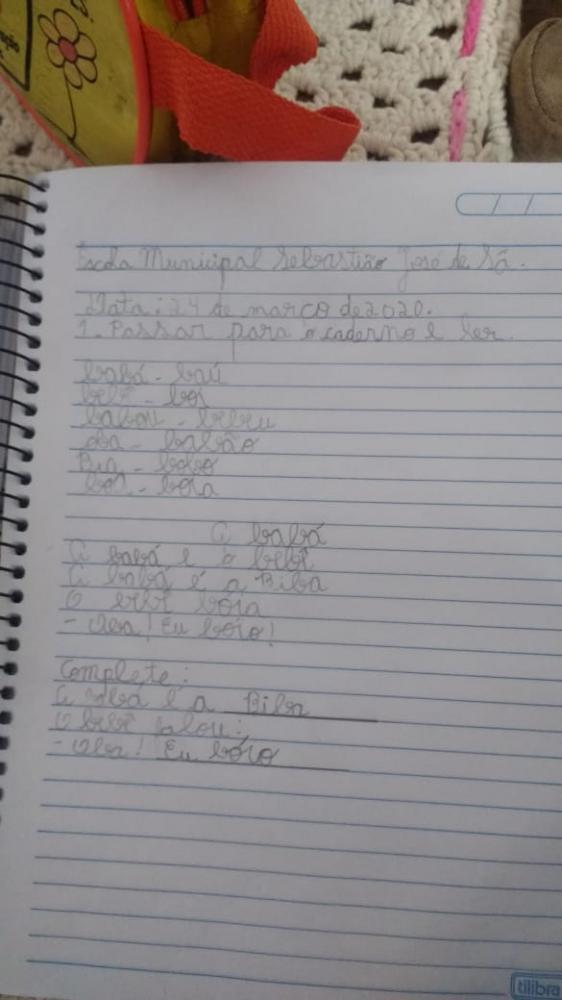 Escola Municipal Sebastião José de Sá.
Data: 24 de março de 2020.
1. Passar para o caderno e ler.
babá - baú
bebê - boi
babou - bebeu
oba - babão
Bia - bobo
boa - boia
A babá
A babá e o bebê
A babá é a Biba
O bebê bóia
- Oba! Eu bóio!
Complete:
A babá é a Biba
O bebê falou:
- Oba! Eu bóio
tilibra